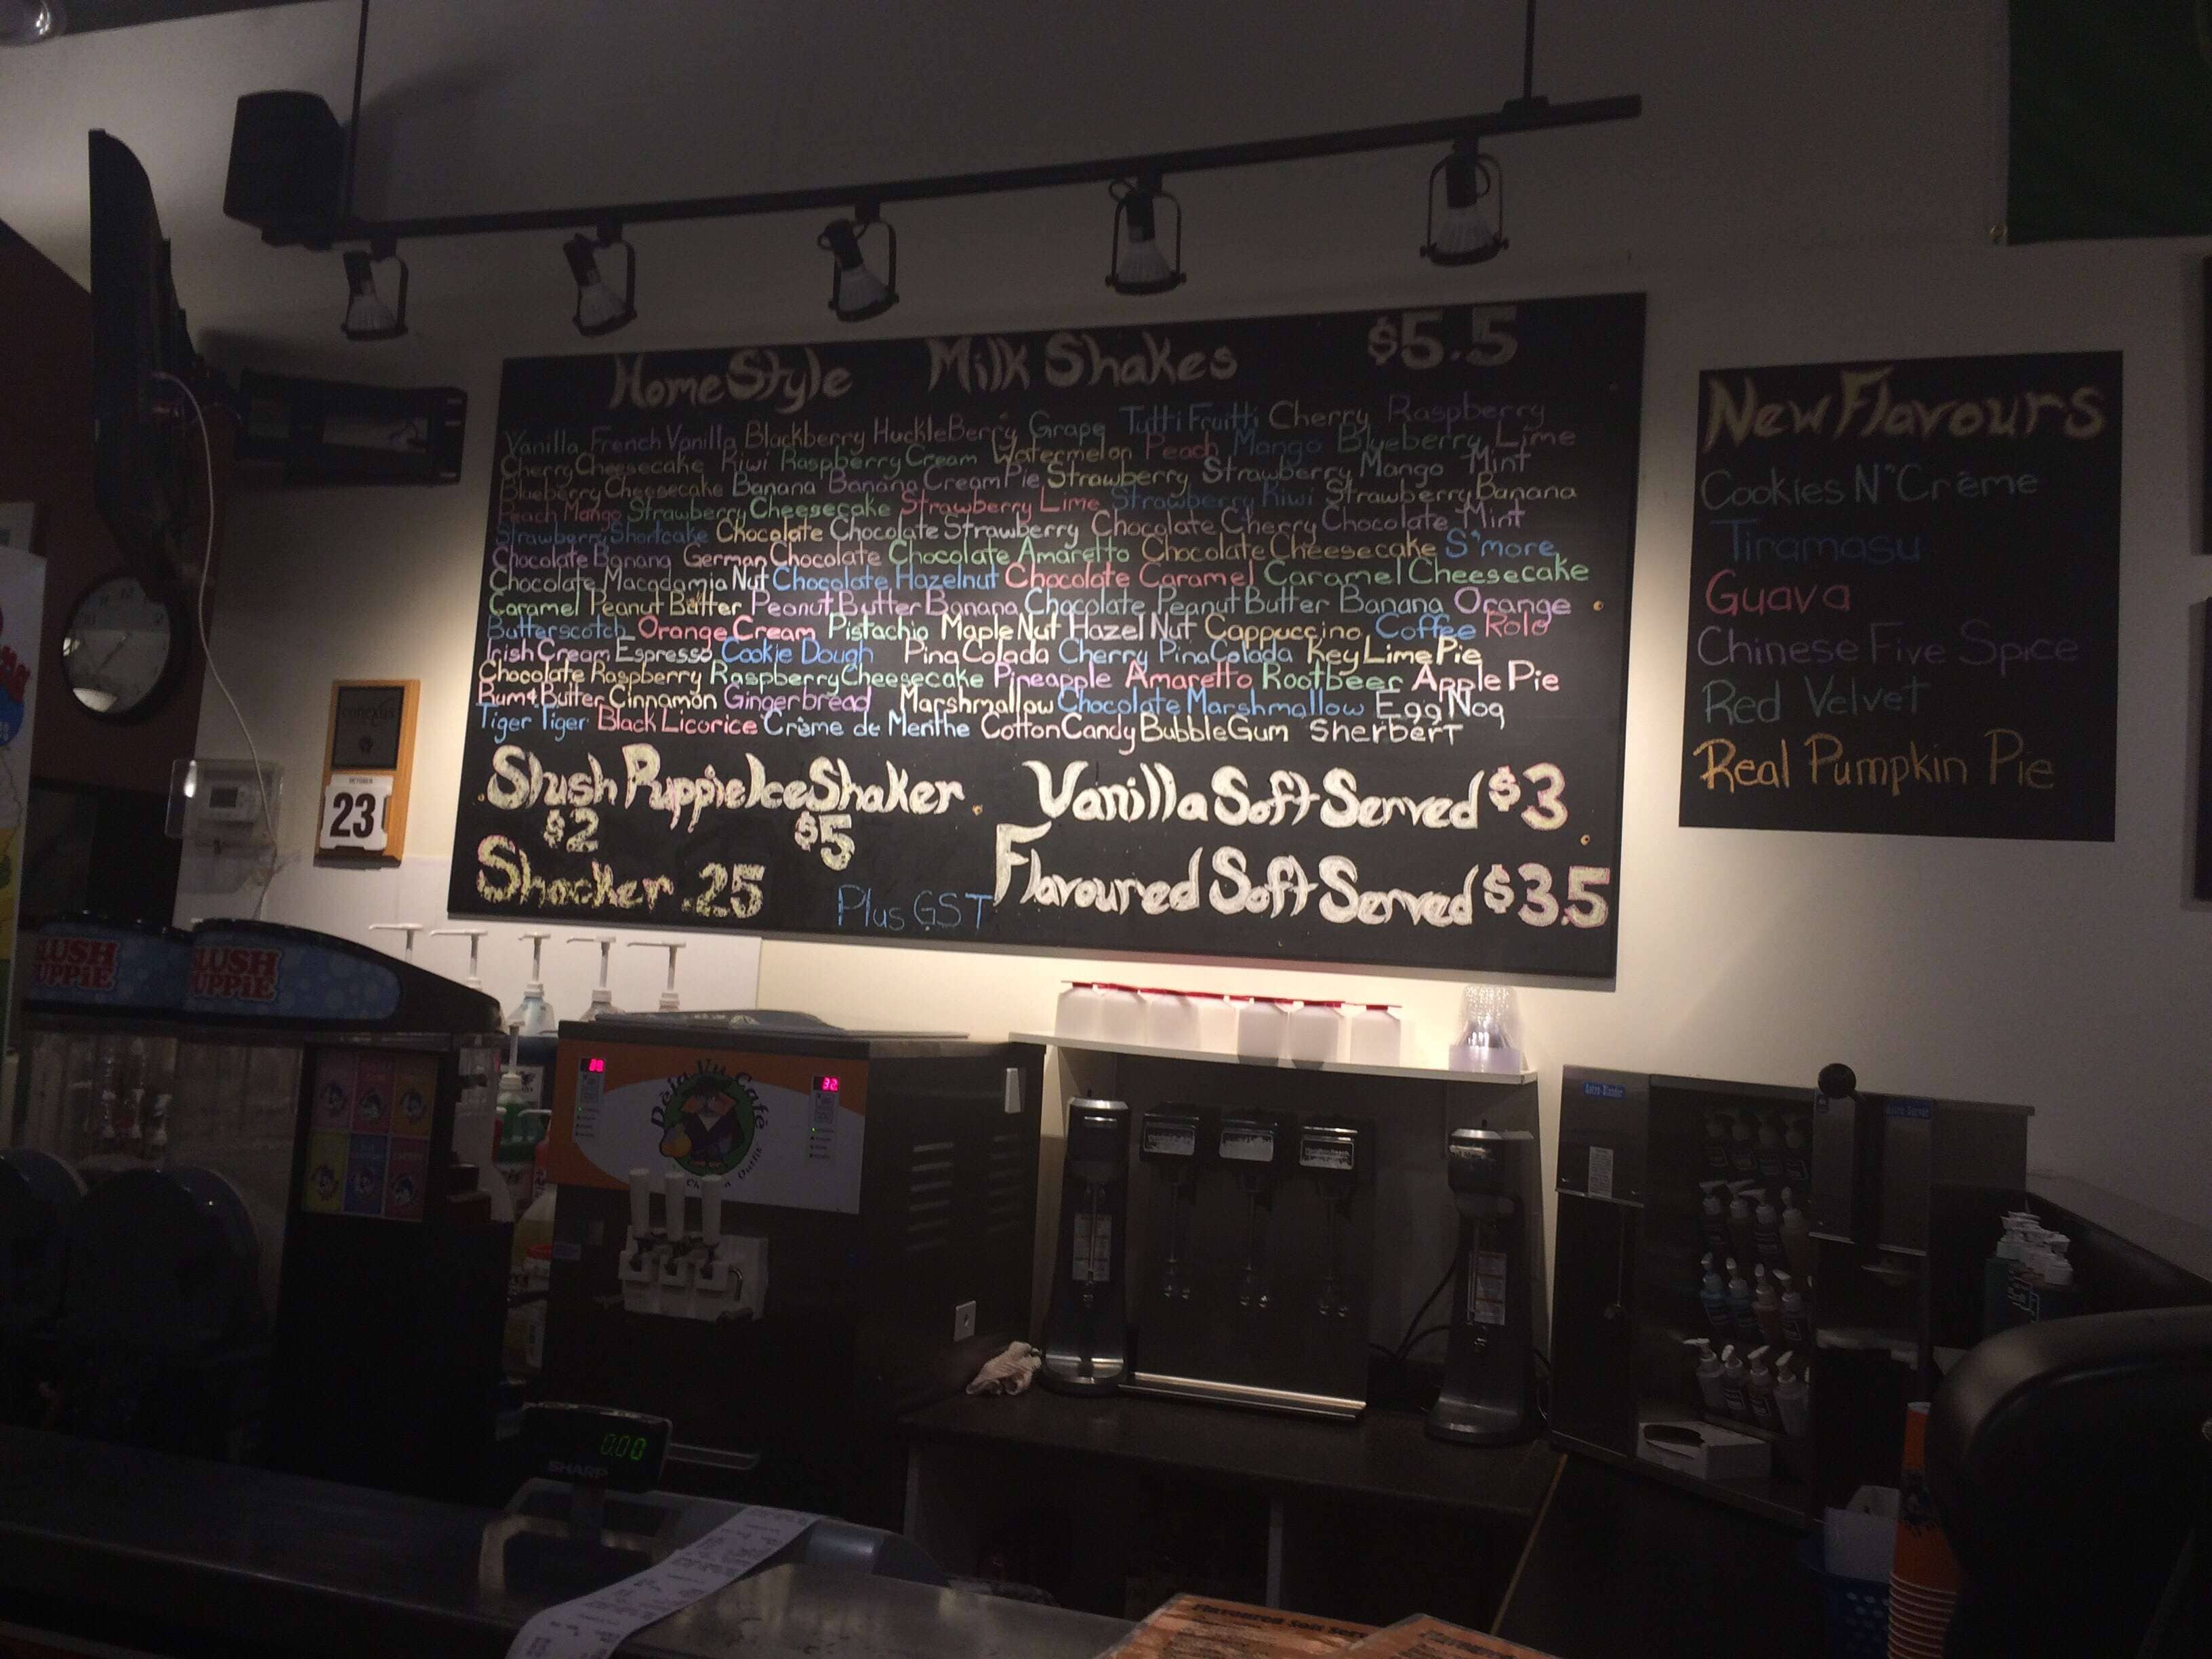 HomeStyle Milk Shakes $5.5
Vanilla French Vanilla Blackberry HuckleBerry Grape Tutti Fruitti Cherry Raspberry
CherryCheesecake Kiwi Raspberry Cream Watermelon Peach Mango Blueberry Lime
Blueberry Cheesecake Banana Banana Cream Pie Strawberry Strawberry Mango Mint
Peach Mango Strawberry Cheesecake Strawberry Lime Strawberry Kiwi Strawberry Banana
Strawberry Shortcake Chocolate Chocolate Strawberry Chocolate Cherry Chocolate Mint
Chocolate Banana German Chocolate Chocolate Amaretto Chocolate Cheesecake S'more
Chocolate Macadamia Nut Chocolate Hazelnut Chocolate Caramel Caramel Cheesecake
Caramel Peanut Butter Peanut Butter Banana Chocolate Peanut Butter Banana Orange
Butterscotch Orange Cream Pistachio Maple Nut Hazel Nut Cappuccino Coffee Rolo
Irish Cream Espresso Cookie Dough Pina Colada Cherry Pina Colada Key Lime Pie
Chocolate Raspberry Raspberry Cheesecake Pineapple Amaretto Rootbeer Apple Pie
Rum & Butter Cinnamon Gingerbread Marshmallow Chocolate Marshmallow Egg Nog
Tiger Tiger Black Licorice Crème de Menthe Cotton Candy Bubble Gum Sherbert
Slush Puppie Ice Shaker Vanilla Soft Served $3
$2 $5
Shocker .25 Flavoured Soft Served $3.5
Plus GST
New Flavours
Cookies N" Crème
Tiramasu
Guava
Chinese Five Spice
Red Velvet
Real Pumpkin Pie
OCTOBER
23
LUSH
UPPiE
LUSH
UPPiE
Deja Vu Café
32
0.00
SHARP
Flavoured Soft Serv